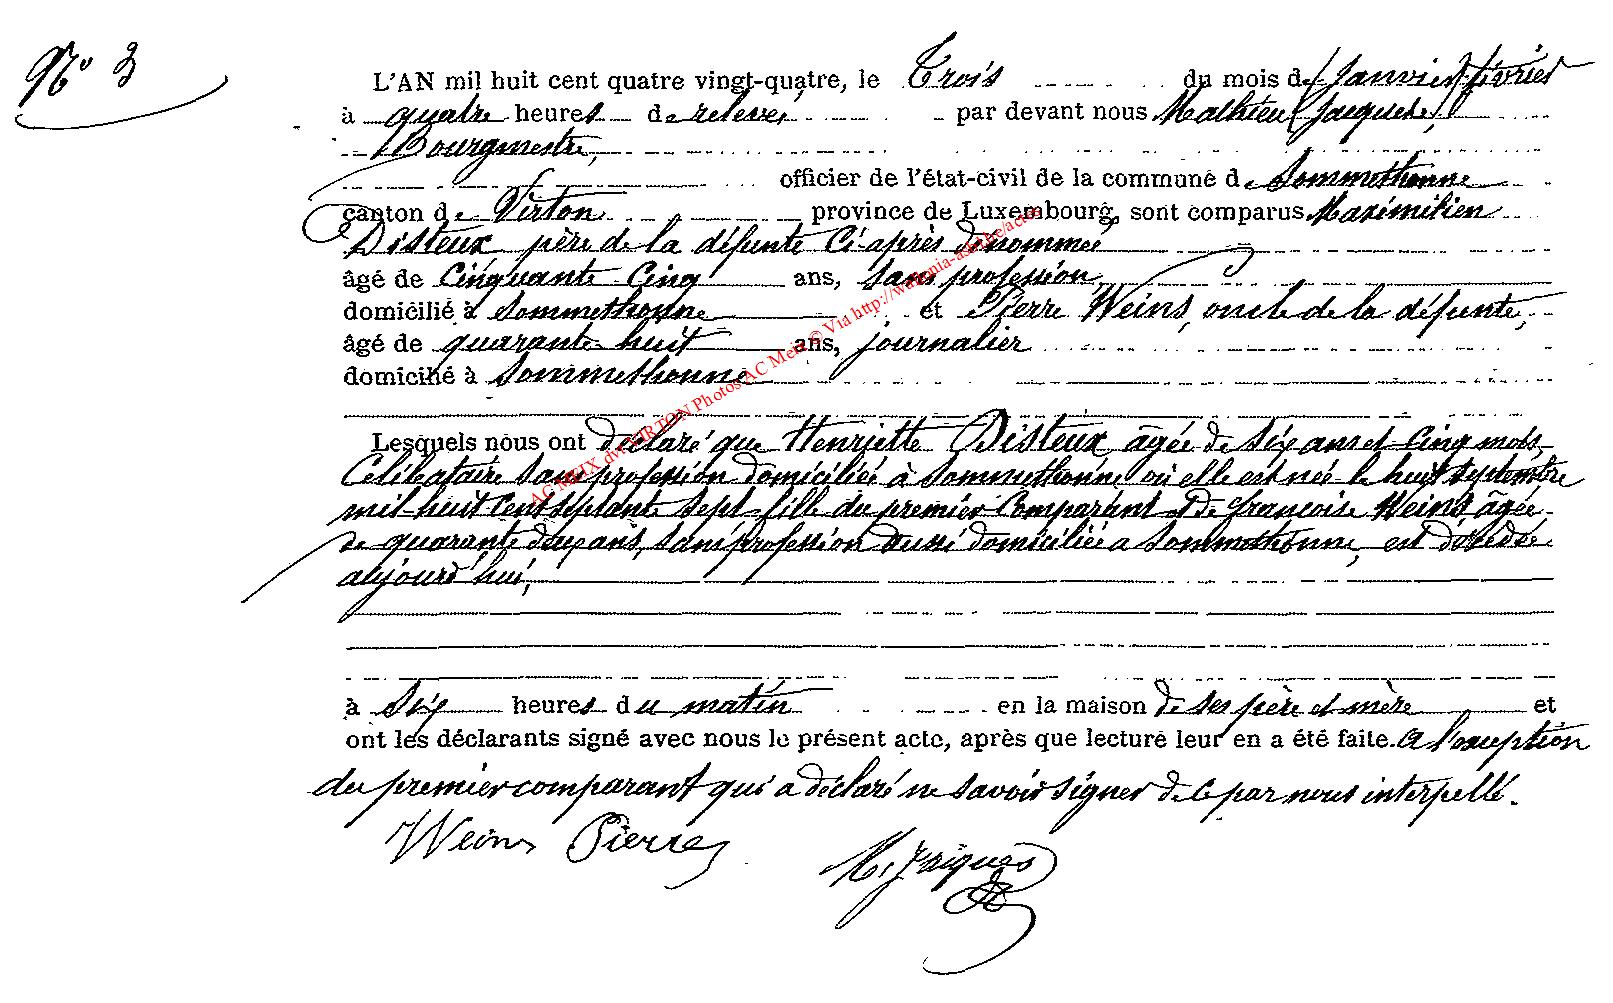 No 3
L'AN mil huit cent quatre vingt-quatre, le Trois du mois de (Janvier) février
à quatre heures de relevée par devant nous Mathieu (Jacques),
Bourgmestre,
officier de l'état-civil de la commune de Sommethonne
canton de Virton province de Luxembourg, sont comparus Maximilien
Disteux père de la défunte ci-après dénommée
âgé de cinquante cinq ans, sans profession,
domicilié à Sommethonne et Pierre Weins, oncle de la défunte,
âgé de quarante huit ans, journalier
domicilié à Sommethonne
Lesquels nous ont déclaré que Henriette Disteux, âgée de six ans et cinq mois,
Célibataire sans profession domiciliée à Sommethonne où elle est née le huit septembre
mil huit cent septante sept fille du premier comparant et de françoise Weins âgée
de quarante deux ans, sans profession aussi domiciliée a Sommethonne, est décédée
aujourd'hui,
à six heures du matin en la maison de ses père et mère et
ont les déclarants signé avec nous le présent acte, après que lecture leur en a été faite. A l'exception
du premier comparant qui a déclaré ne savoir signer de ce par nous interpellé.
Weins Pierre
M. Jaques
AC MEIX dvt VIRTON Photos AC Meix © Via http://wallonia-asbl.be/actes